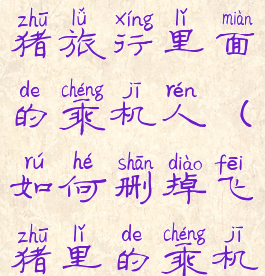 zhū lǚ xíng lǐ miàn
猪旅行里面
de chéng jī rén
的乘机人（
rú hé shān diào fēi
如何删掉飞
zhū lǐ de chéng jī
猪里的乘机